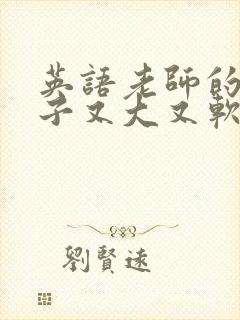 英語老師的
子又大又軟
劉賢遠